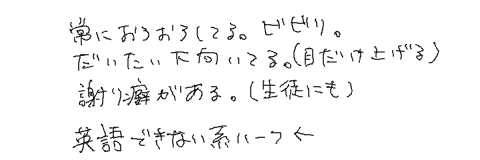 常におろおろしてる。ビビリ。
だいたい下向いてる。(目だけ上げる)
謝り癖がある。(生徒にも)
英語できない系ハーフ←